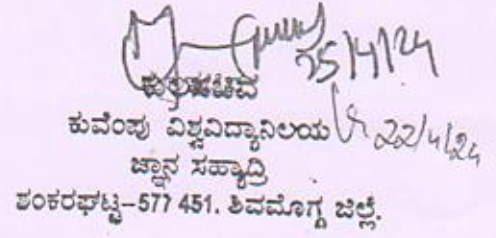 25/4/24
ಕುಲಸಚಿವ
ಕುವೆಂಪು ವಿಶ್ವವಿದ್ಯಾನಿಲಯ 22/4/24
ಜ್ಞಾನ ಸಹ್ಯಾದ್ರಿ
ಶಂಕರಘಟ್ಟ-577 451. ಶಿವಮೊಗ್ಗ ಜಿಲ್ಲೆ.